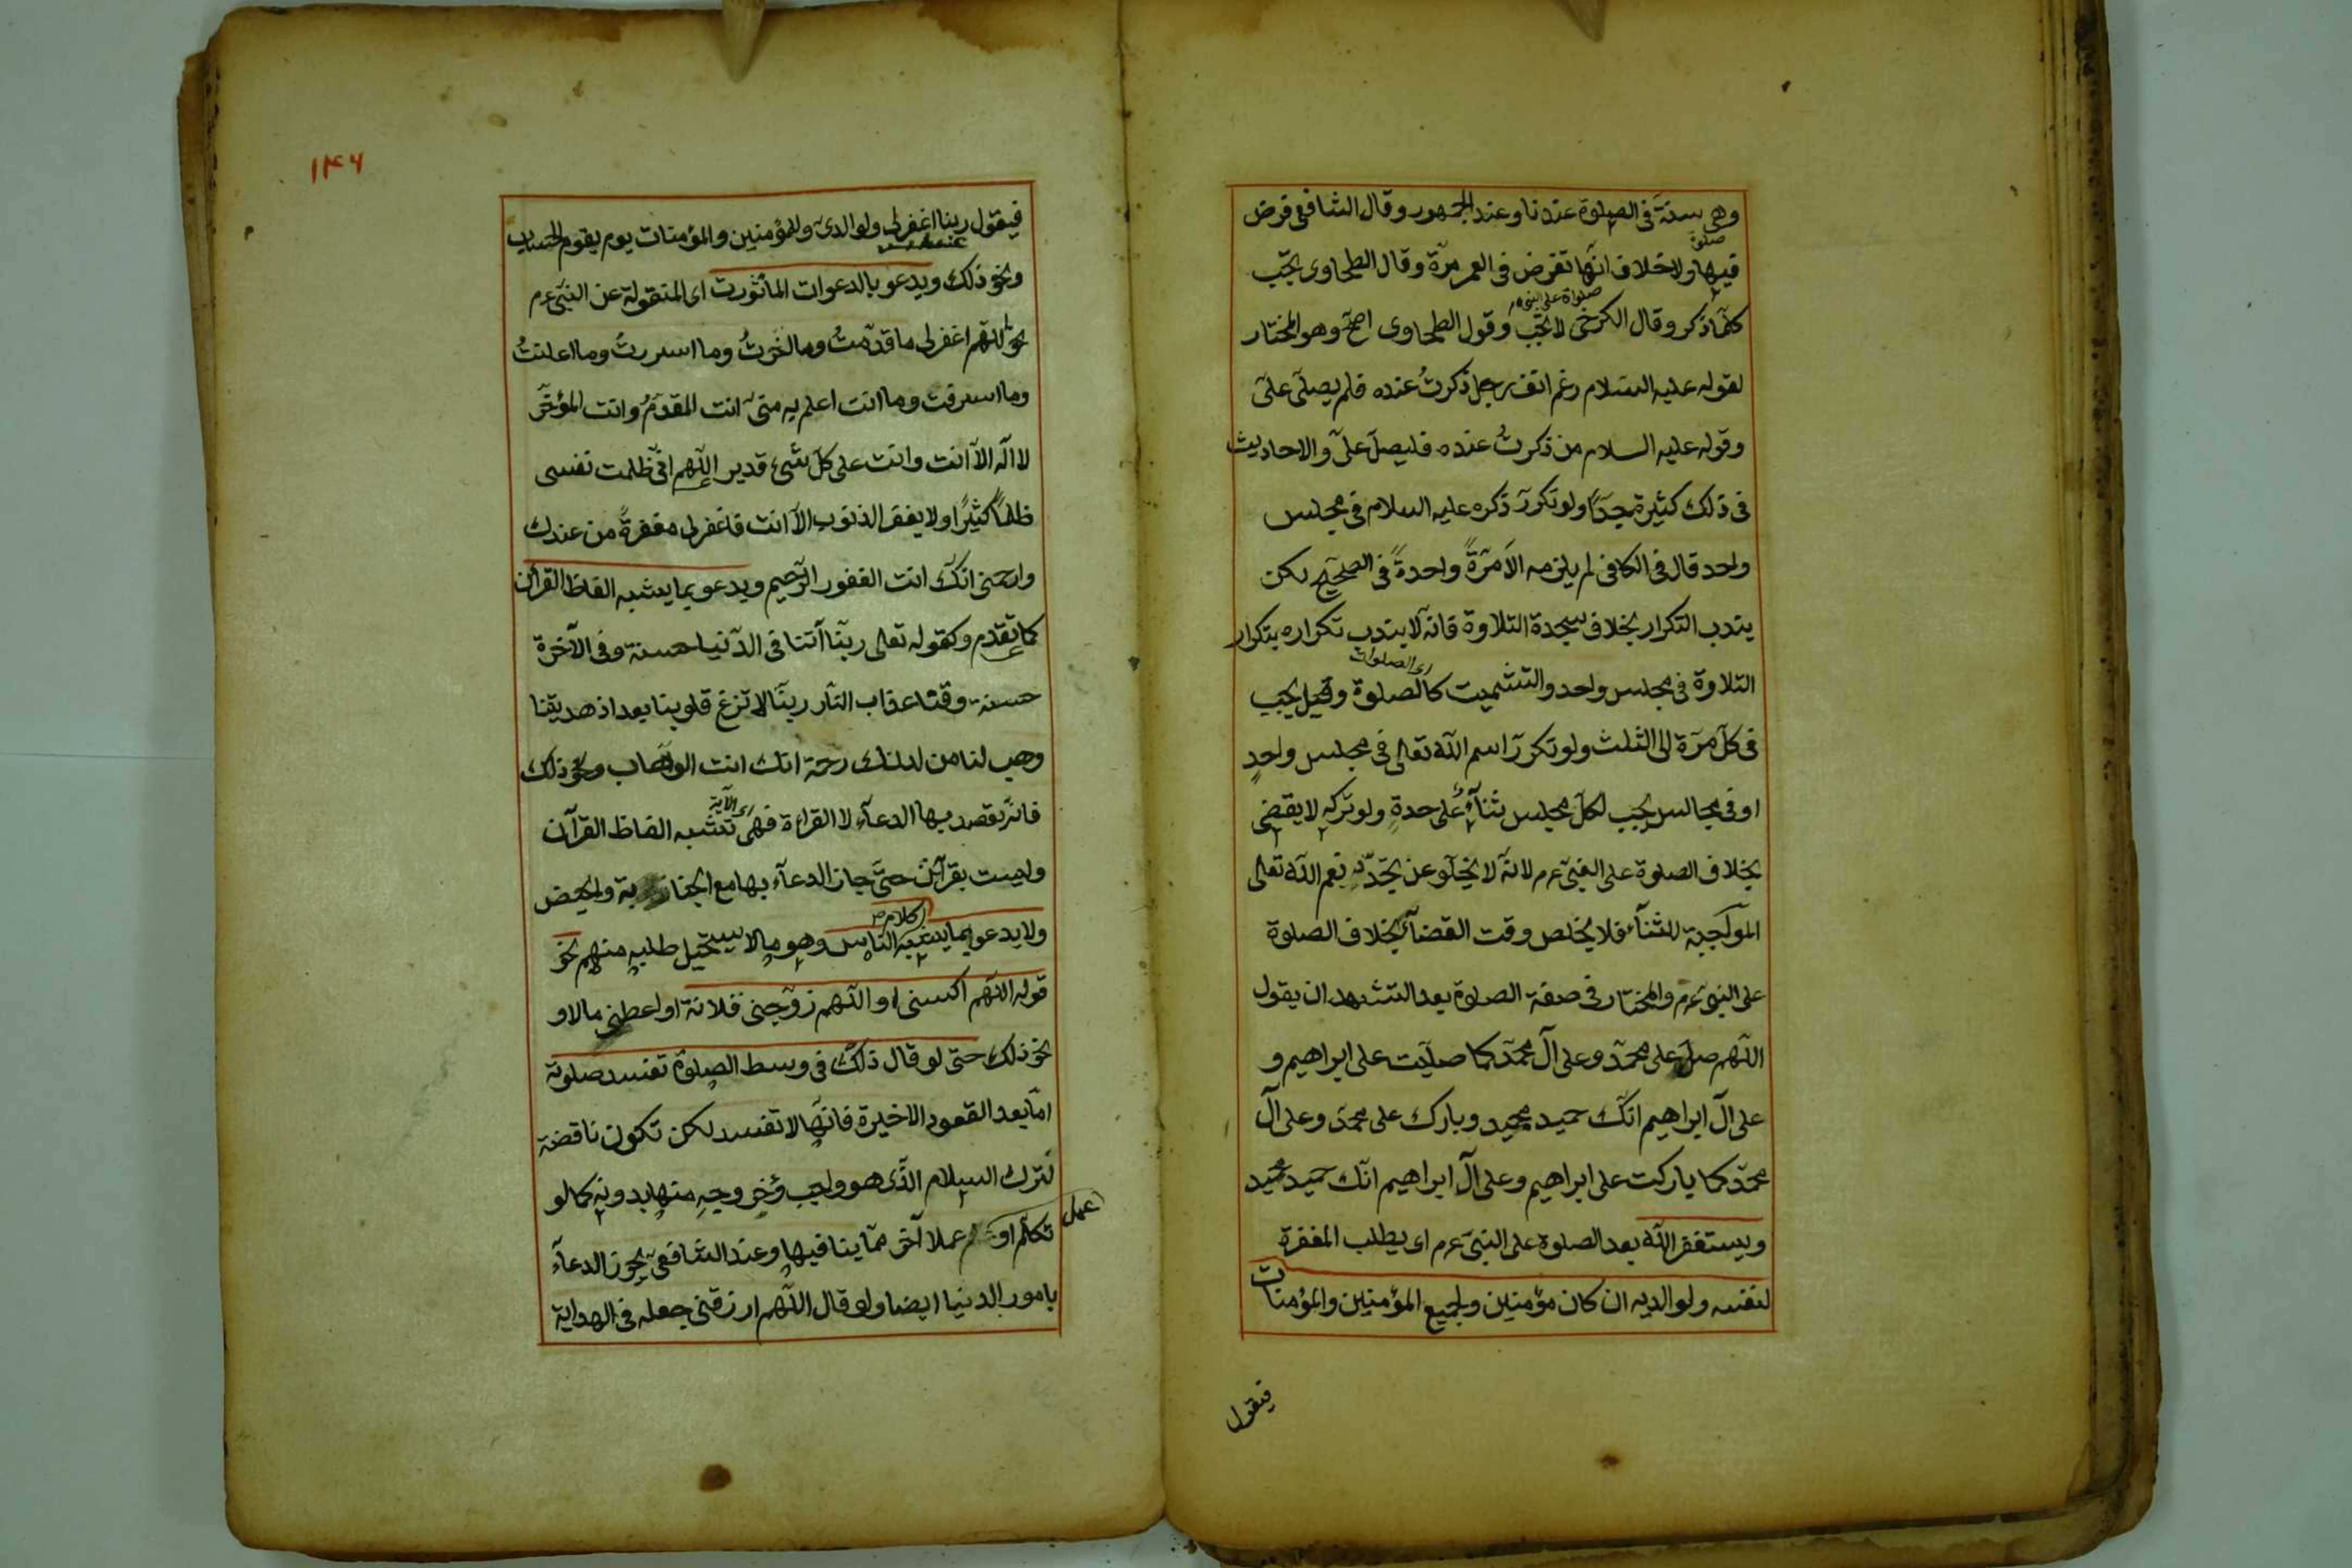 وهى سنة فى الصلوة عندنا وعند الجمهور وقال الشافعى فرض
صلوة
فيها ولا خلاف انّها تفرض فى العمر مرّة وقال الطحاوى يجب
صلواة على النبى م
كلّما ذكر وقال الكرخى لا يجب وقول الطحاوى اصحّ وهو المختار
لقوله عليه السلام رغم انف رجل ذكرتُ عنده فلم يصلّى علىّ
وقوله عليه السلام من ذكرتُ عنده فليصلّ علىّ والاحاديث
فى ذلك كثيرة جدّا ولو تكررّ ذكره عليه السلام فى مجلس
واحد قال فى الكافى لم يلزمه الاّ مرّةً واحدةً فى الصحيح لكن
يندب التكرار بخلاف سجدة التلاوة فانه لا يندب تكراره بتكرار
اى الصلوات
التلاوة فى مجلس واحد والتشميت كالصلوة وقيل يجب
فى كلّ مرّة الى الثلث ولو تكررّ اسم اللّه تعالى فى مجلس واحدٍ
او فى مجالس يجب لكلّ مجلس ثناءٌ على حدةٍ ولو تركه لا يقضى
بخلاف الصلوة على النبى عرم لانّه لا يخلو عن تجدّد نعم اللّه تعالى
الموجبة للثناء فلا يخلص وقت القضاء بخلاف الصلوة
على النبى عرم والمختار فى صفة الصلوة بعد التشهد ان يقول
اللّهم صلّ على محمّد وعلى آل محمّد كما صليّت على ابراهيم و
على آل ابراهيم انّك حميد مجيد وبارك على محمّد وعلى آل
محمّد كما باركت على ابراهيم وعلى آل ابراهيم انّك حميد مجيد
ويستغفر اللّه بعد الصلوة على النبىّ عرم اى يطلب المغفرة
لنفسه ولوالديه ان كان مؤمنين ولجميع المؤمنين والمؤمنات
فيقول
١٣٦
فيقول ربنا اغفرلى ولوالدىّ وللمؤمنين والمؤمنات يوم يقوم الحساب
ونحو ذلك ويدعو بالدعوات المأثورت اى المنقولة عن النبىّ عرم
نحو اللّهم اغفرلى ما قدّمتُ وما اخّرتُ وما اسررتُ وما اعلنتُ
وما اسرفت وما انت اعلم به منّى انت المقدّمُ وانت المؤخّر
لا اله الاّ انت وانت على كلّ شىء قدير اللّهم انّى ظلمت نفسى
ظلماً كثيرًا ولا يغفر الذنوب الاّ انت فاغفرلى مغفرةً من عندك
وارحمنى انّك انت الغفور الرّحيم ويدعو بما يشبه الفاظ القرآن
كما تقدم وكقوله تعالى ربّنا آتنا فى الدّنيا حسنة وفى الآخرة
حسنة وقنا عذاب النّار ربنّا لا تزغ قلوبنا بعد اذ هديتنا
وهب لنا من لدنك رحمة انك انت الوهّاب ونحو ذلك
اى الآية
فانّه يقصد بها الدعاء لا القراءة فهى تشبه الفاظ القرآن
وليست بقرآن حتّى جاز الدعاء بها مع الجنابة والحيض
كلام ص
ولا يدعو بما يشبه الناس وهو ما لا يستحيل طلبه منهم نحو
قوله اللّهم اكسنى او اللّهم زوّجنى فلانة او اعطنى مالا و
نحو ذلك حتى لو قال ذلك فى وسط الصلوة تفسد صلوته
امّا بعد القعود الاخيرة فانّها لا تفسد لكن تكون ناقصة
لترك السلام الّذى هو واجب وخروجه منها بدونه كما لو
عمل
تكلّم او عملا آخر ممّا ينافيها وعند الشافعىّ يجوز الدعاء
بامور الدنيا ايضا ولو قال اللّهم ارزقنى جعله فى الهداية